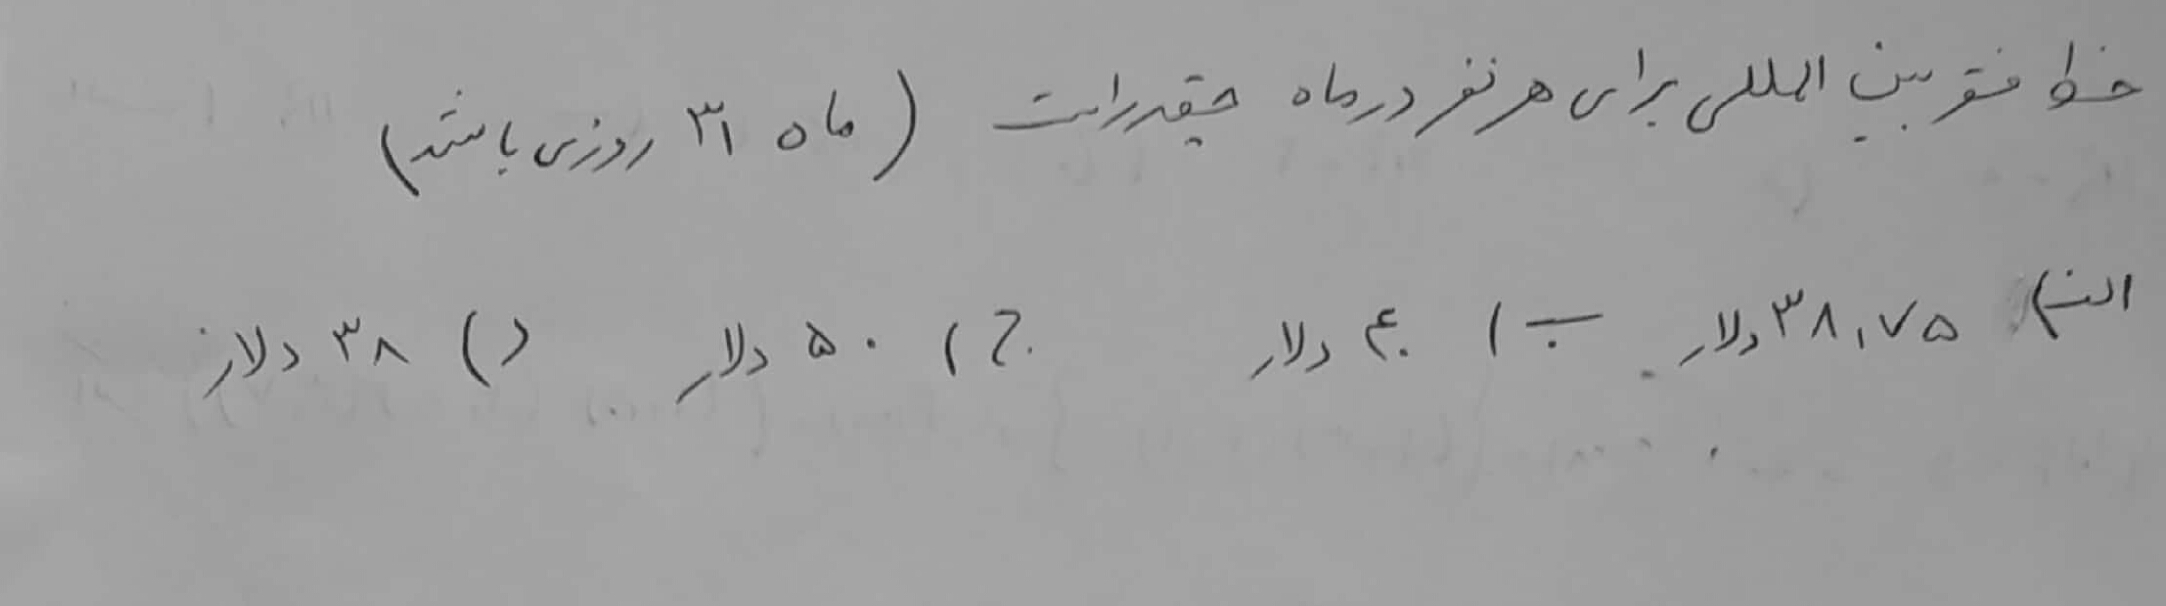 خط فقر بین المللی برای هر نفر در ماه چقدر است (ماه ۳۱ روزی باشد)
الف) ۳۸,۷۵ دلار ب) ۴۰ دلار ج) ۵۰ دلار د) ۳۸ دلار